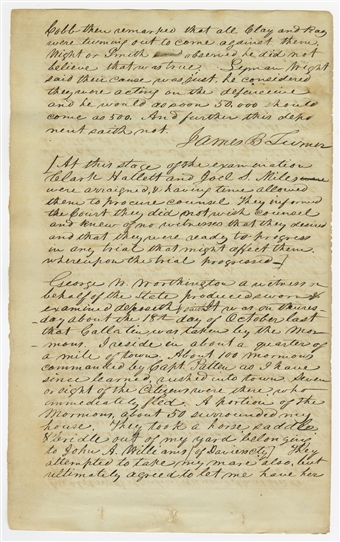 Cobb then remarked that all Clay and Ray
were turning out to come against them.
Wight or Smith observed he did not
believe that was true. Lyman Wight
said their cause was just he considered
they were acting on the defensive
and he would as soon 50.000 should
come as 500. And further this depo
nent saith not.
James B Turner
[At this stage of the examination
Clark Hallett and Joel S. Miles were
were arraigned, & having time allowed
them to procure counsel They informed
the Court they did not wish counsel
and knew of no witnesses that they desired
and that they were ready to progress
in any trial that might effect them.
whereupon the trial progressed—]
George W. Worthington a witness in
behalf of the State produced sworn &
examined deposeth It was on thurs-
day about the 18th day of October last
that Gallatin was taken by the Mor
mons. I reside in about a quarter of
a mile of town. About 100 mormons
commanded by Capt. Patten as I have
since learned, rushed into town. Seven
or eight of the Citizens were there, who
immediately fled. A portion of the
Mormons, about 50 surrounded my
house. They took a horse saddle
& bridle out of my yard belonging
to John A. Williams [of Daviess cty] They
attempted to take my mare also, but
ultimately agreed to let me have her